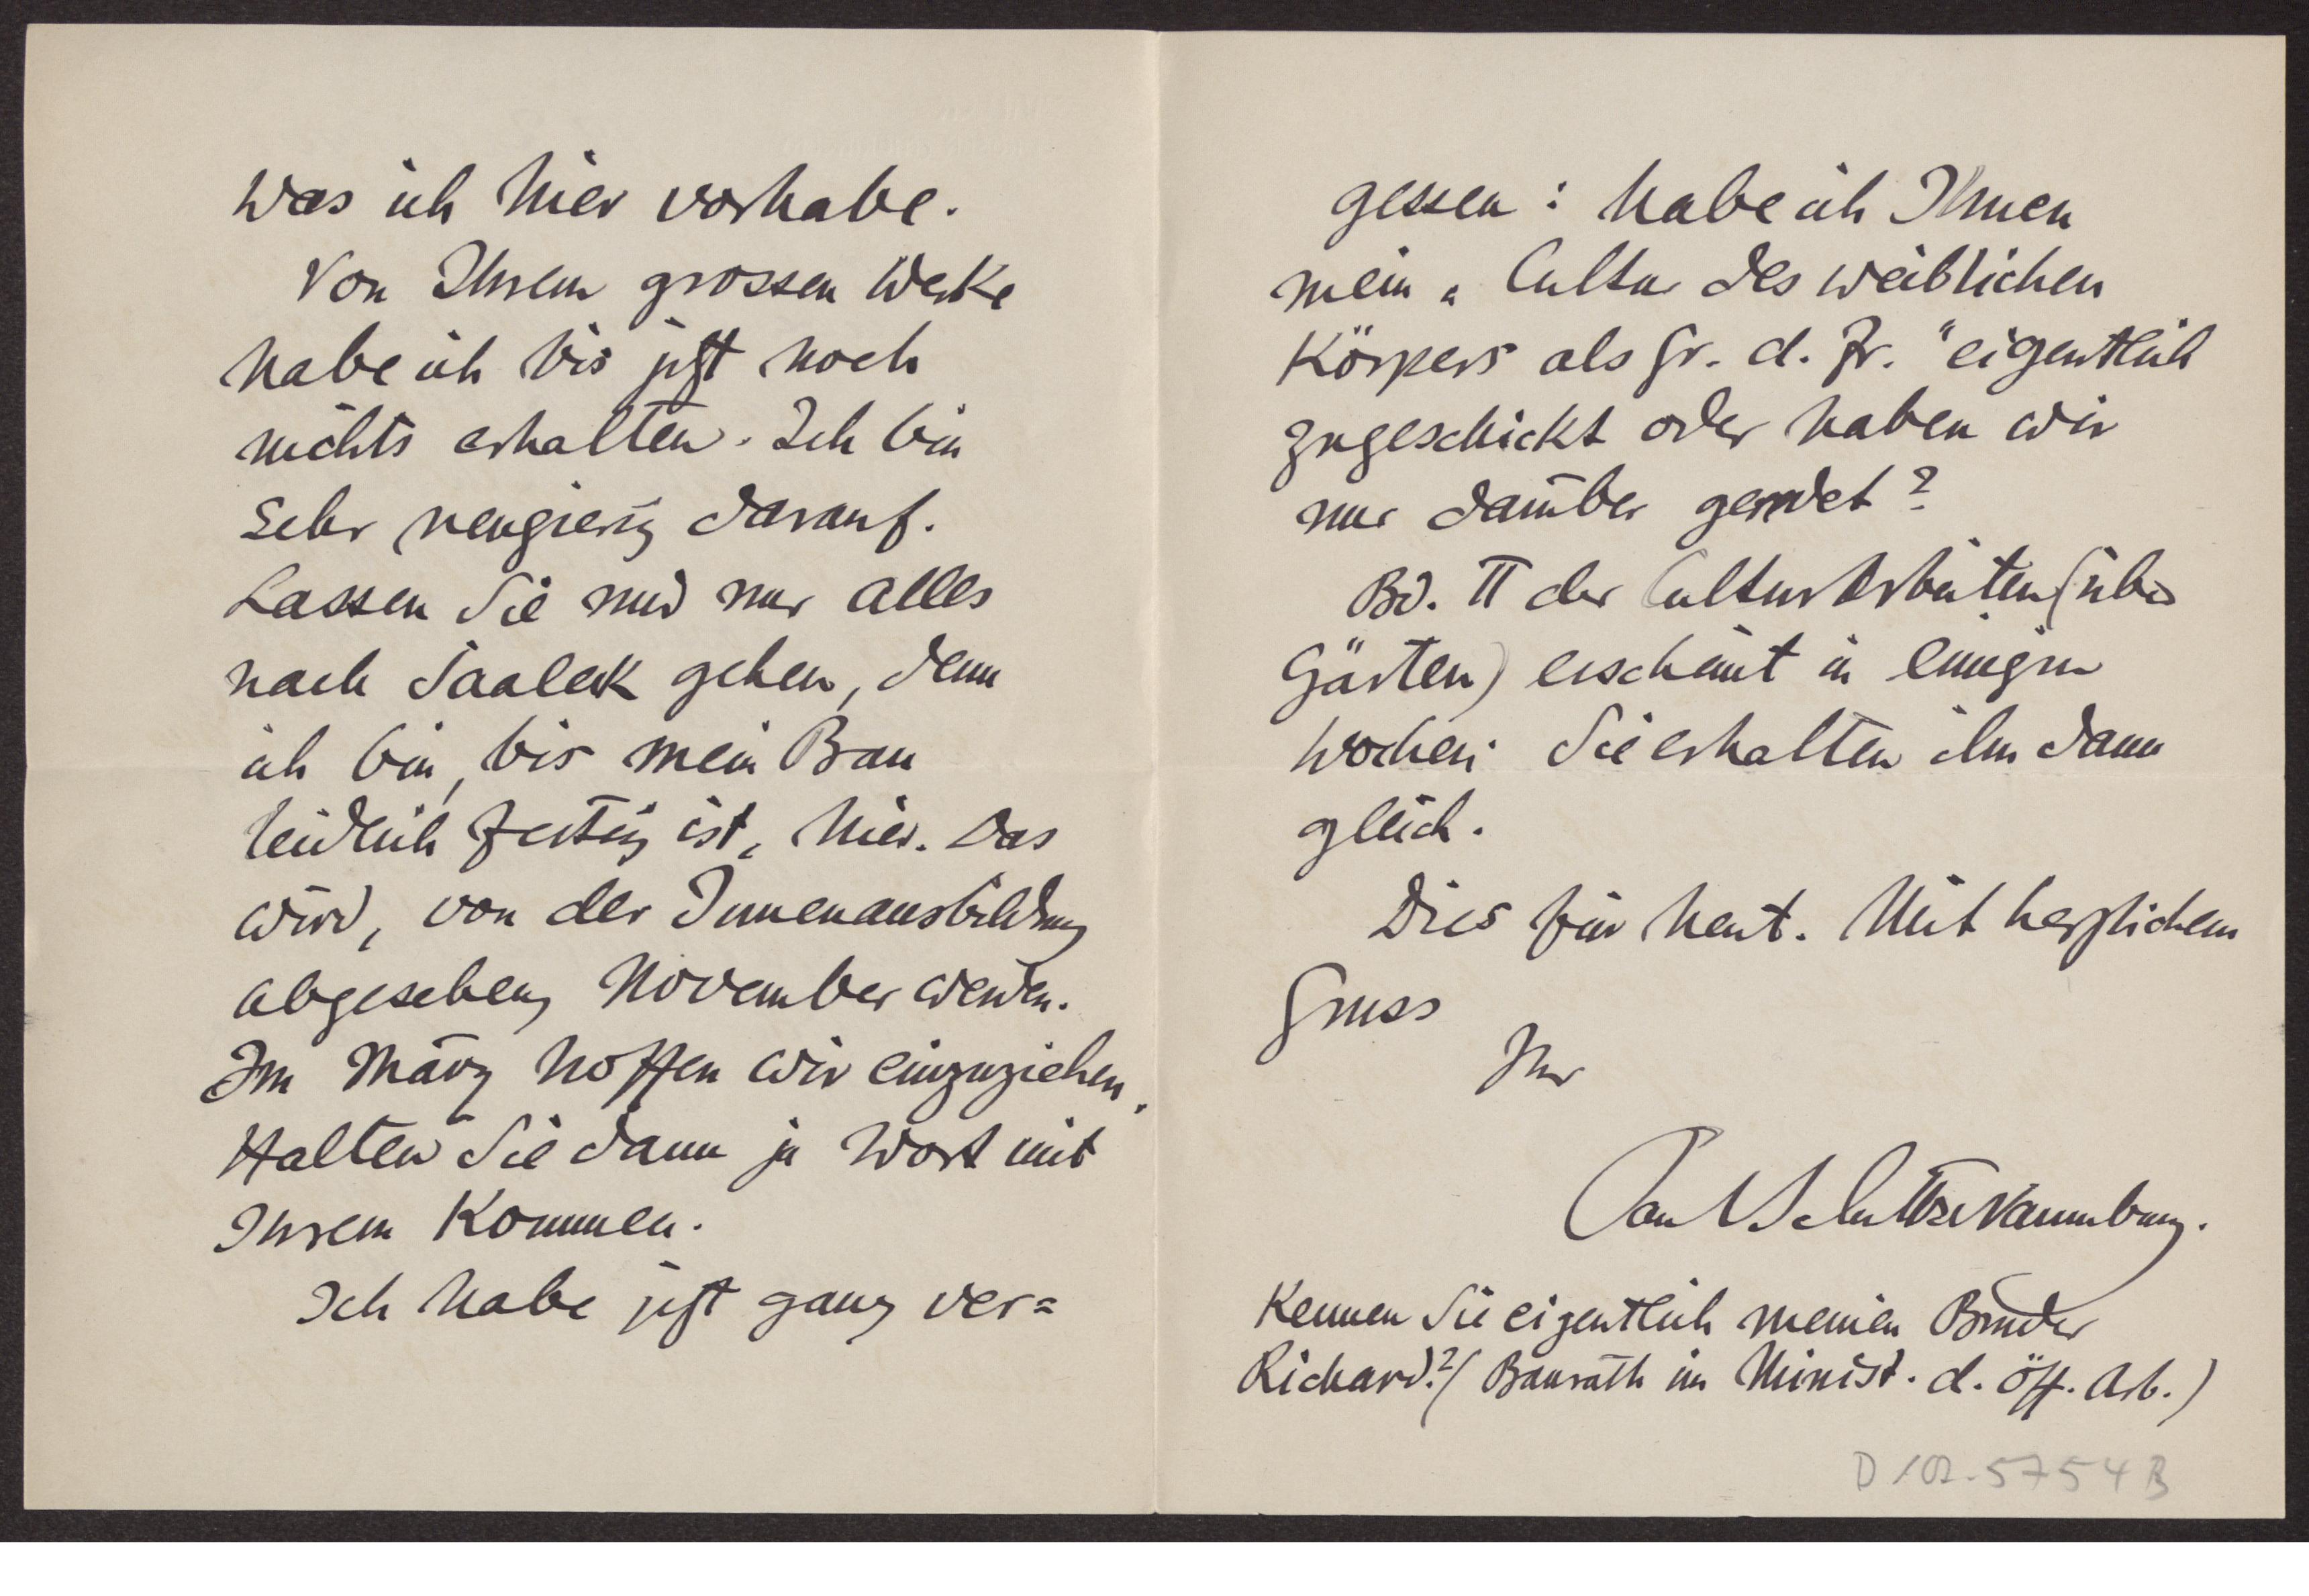 was ich hier vorhabe.
Von Ihrem grossen Werke
habe ich bis jetzt noch
nichts erhalten. Ich bin
sehr neugierig darauf.
Lassen Sie nur alles
nach Saaleck gehen, denn
ich bin, bis mein Bau
leidlich fertig ist, hier. Das
wird, von der Innenausbildung
abgesehen, November werden.
Im März hoffen wir einzuziehen.
Halten Sie dann ja Wort mit
Ihrem Kommen.
Ich habe jetzt ganz ver=
gessen: habe ich Ihnen
mein „Cultur des weiblichen
Körpers als Gr. d. Fr." eigentlich
zugeschickt oder haben wir
nur darüber geredet?
Bd. II der Culturarbeiten (über
Gärten) erscheint in einigen
Wochen. Sie erhalten ihn dann
gleich.
Dies für heut. Mit herzlichem
Gruss
Ihr
Paul Schultze Naumburg.
Kennen Sie eigentlich meinen Bruder
Richard? (Baurath im Minist. d. öff. Arb.)
D 102.5754 B